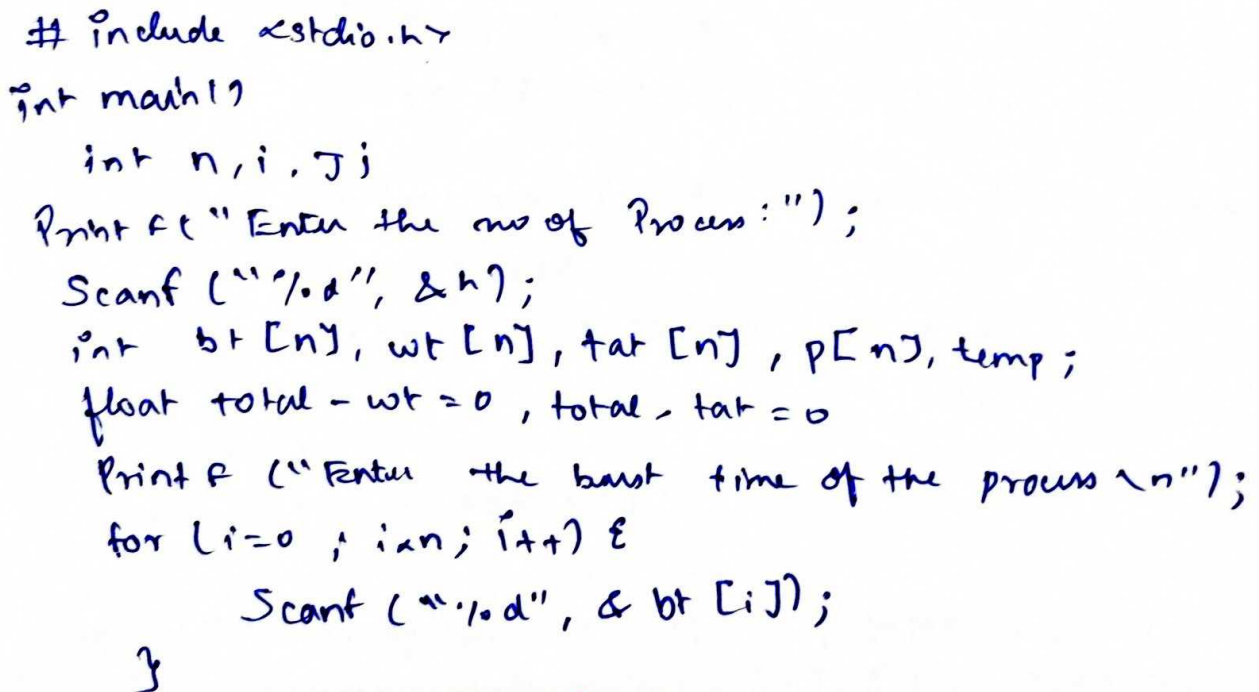 # include <stdio.h>
int main()
int n, i, J;
Printf("Enter the no of Process:");
Scanf ("%d", &n);
int bt [n], wt [n], tat [n], p[n], temp;
float total - wt = 0, total - tat = 0
Printf ("Enter the burst time of the process \n");
for (i=0; i<n; i++) {
Scanf ("%d", & bt [i]);
}